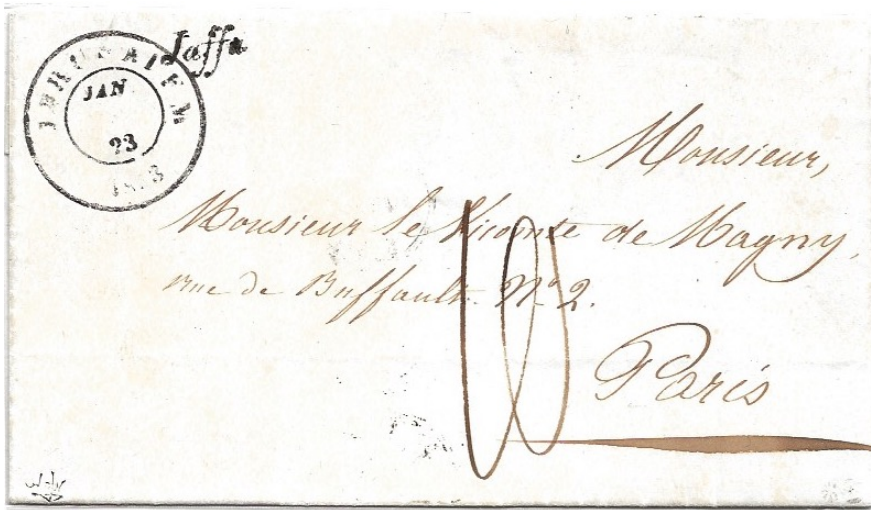 Jaffa
JERUSALEM
JAN
23
Monsieur,
Monsieur le Vicomte de Magny,
rue de Buffault N° 2.
10
Paris